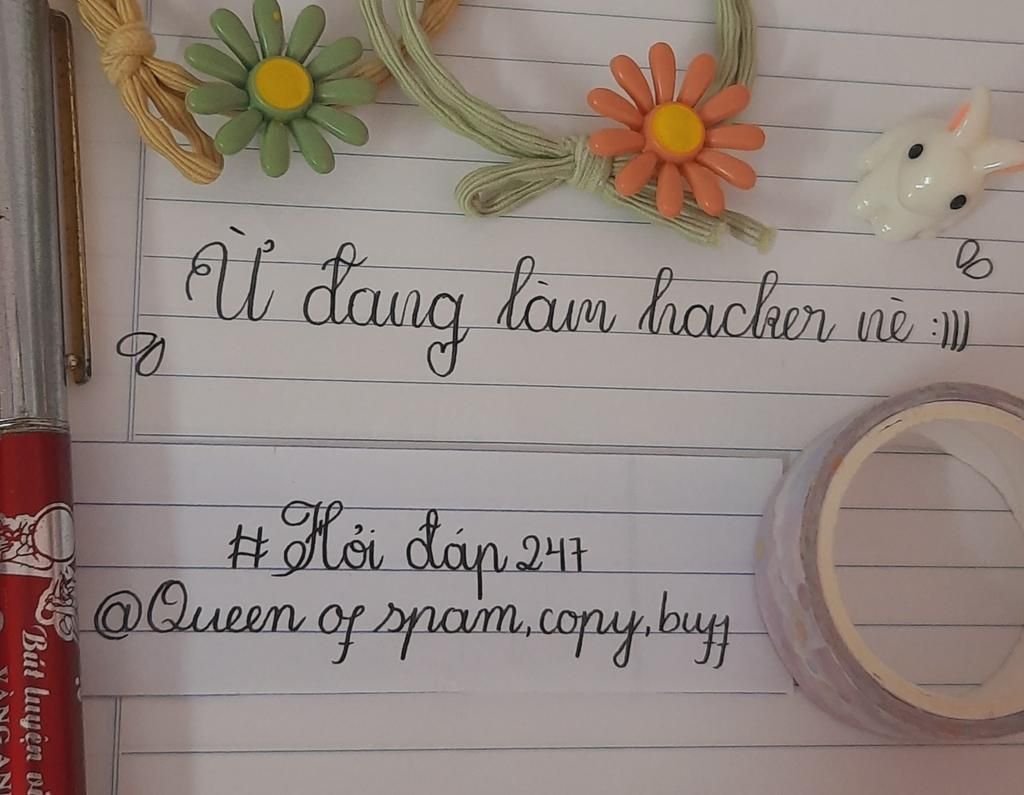 Ừ đang làm hacker nè :)))
#Hỏi đáp 247
@Queen of spam, copy, buff
Bút luyện vi
VANG AN